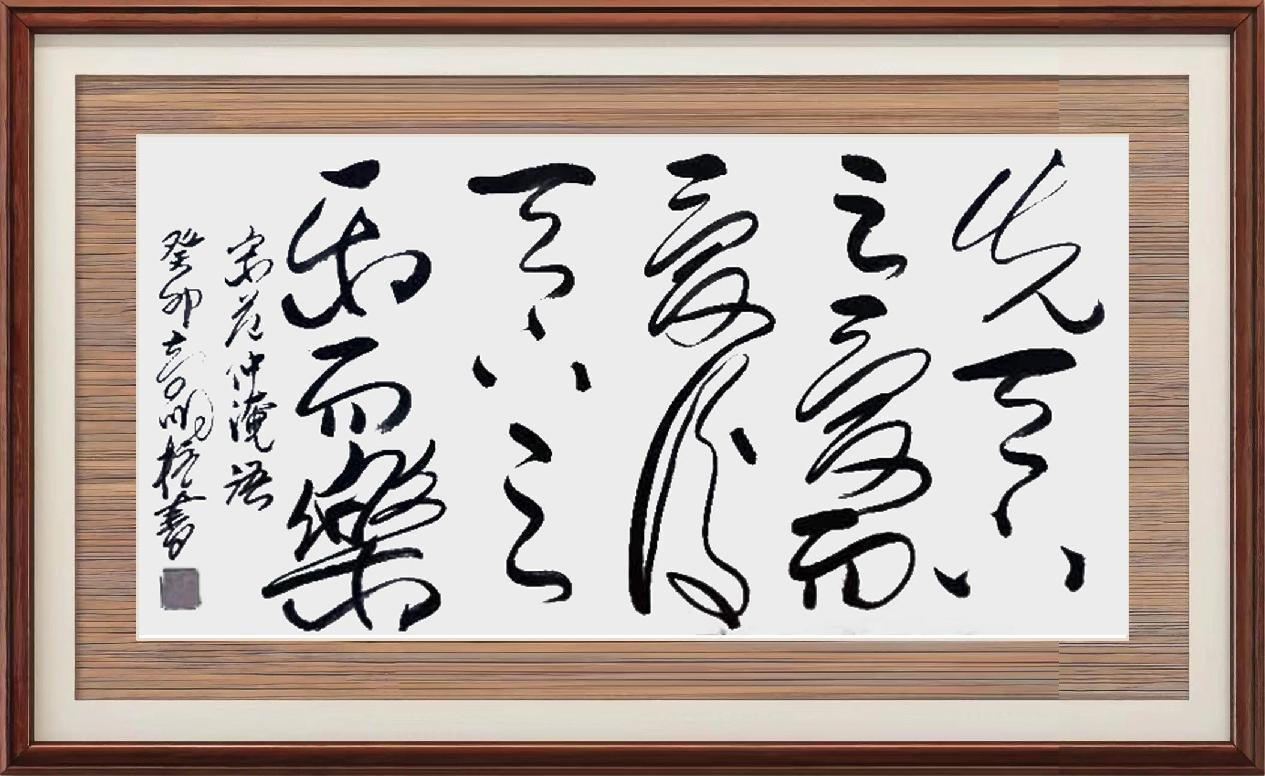 先天下
之憂而
憂後
天下之
乐而樂
宋范仲淹語
癸卯書